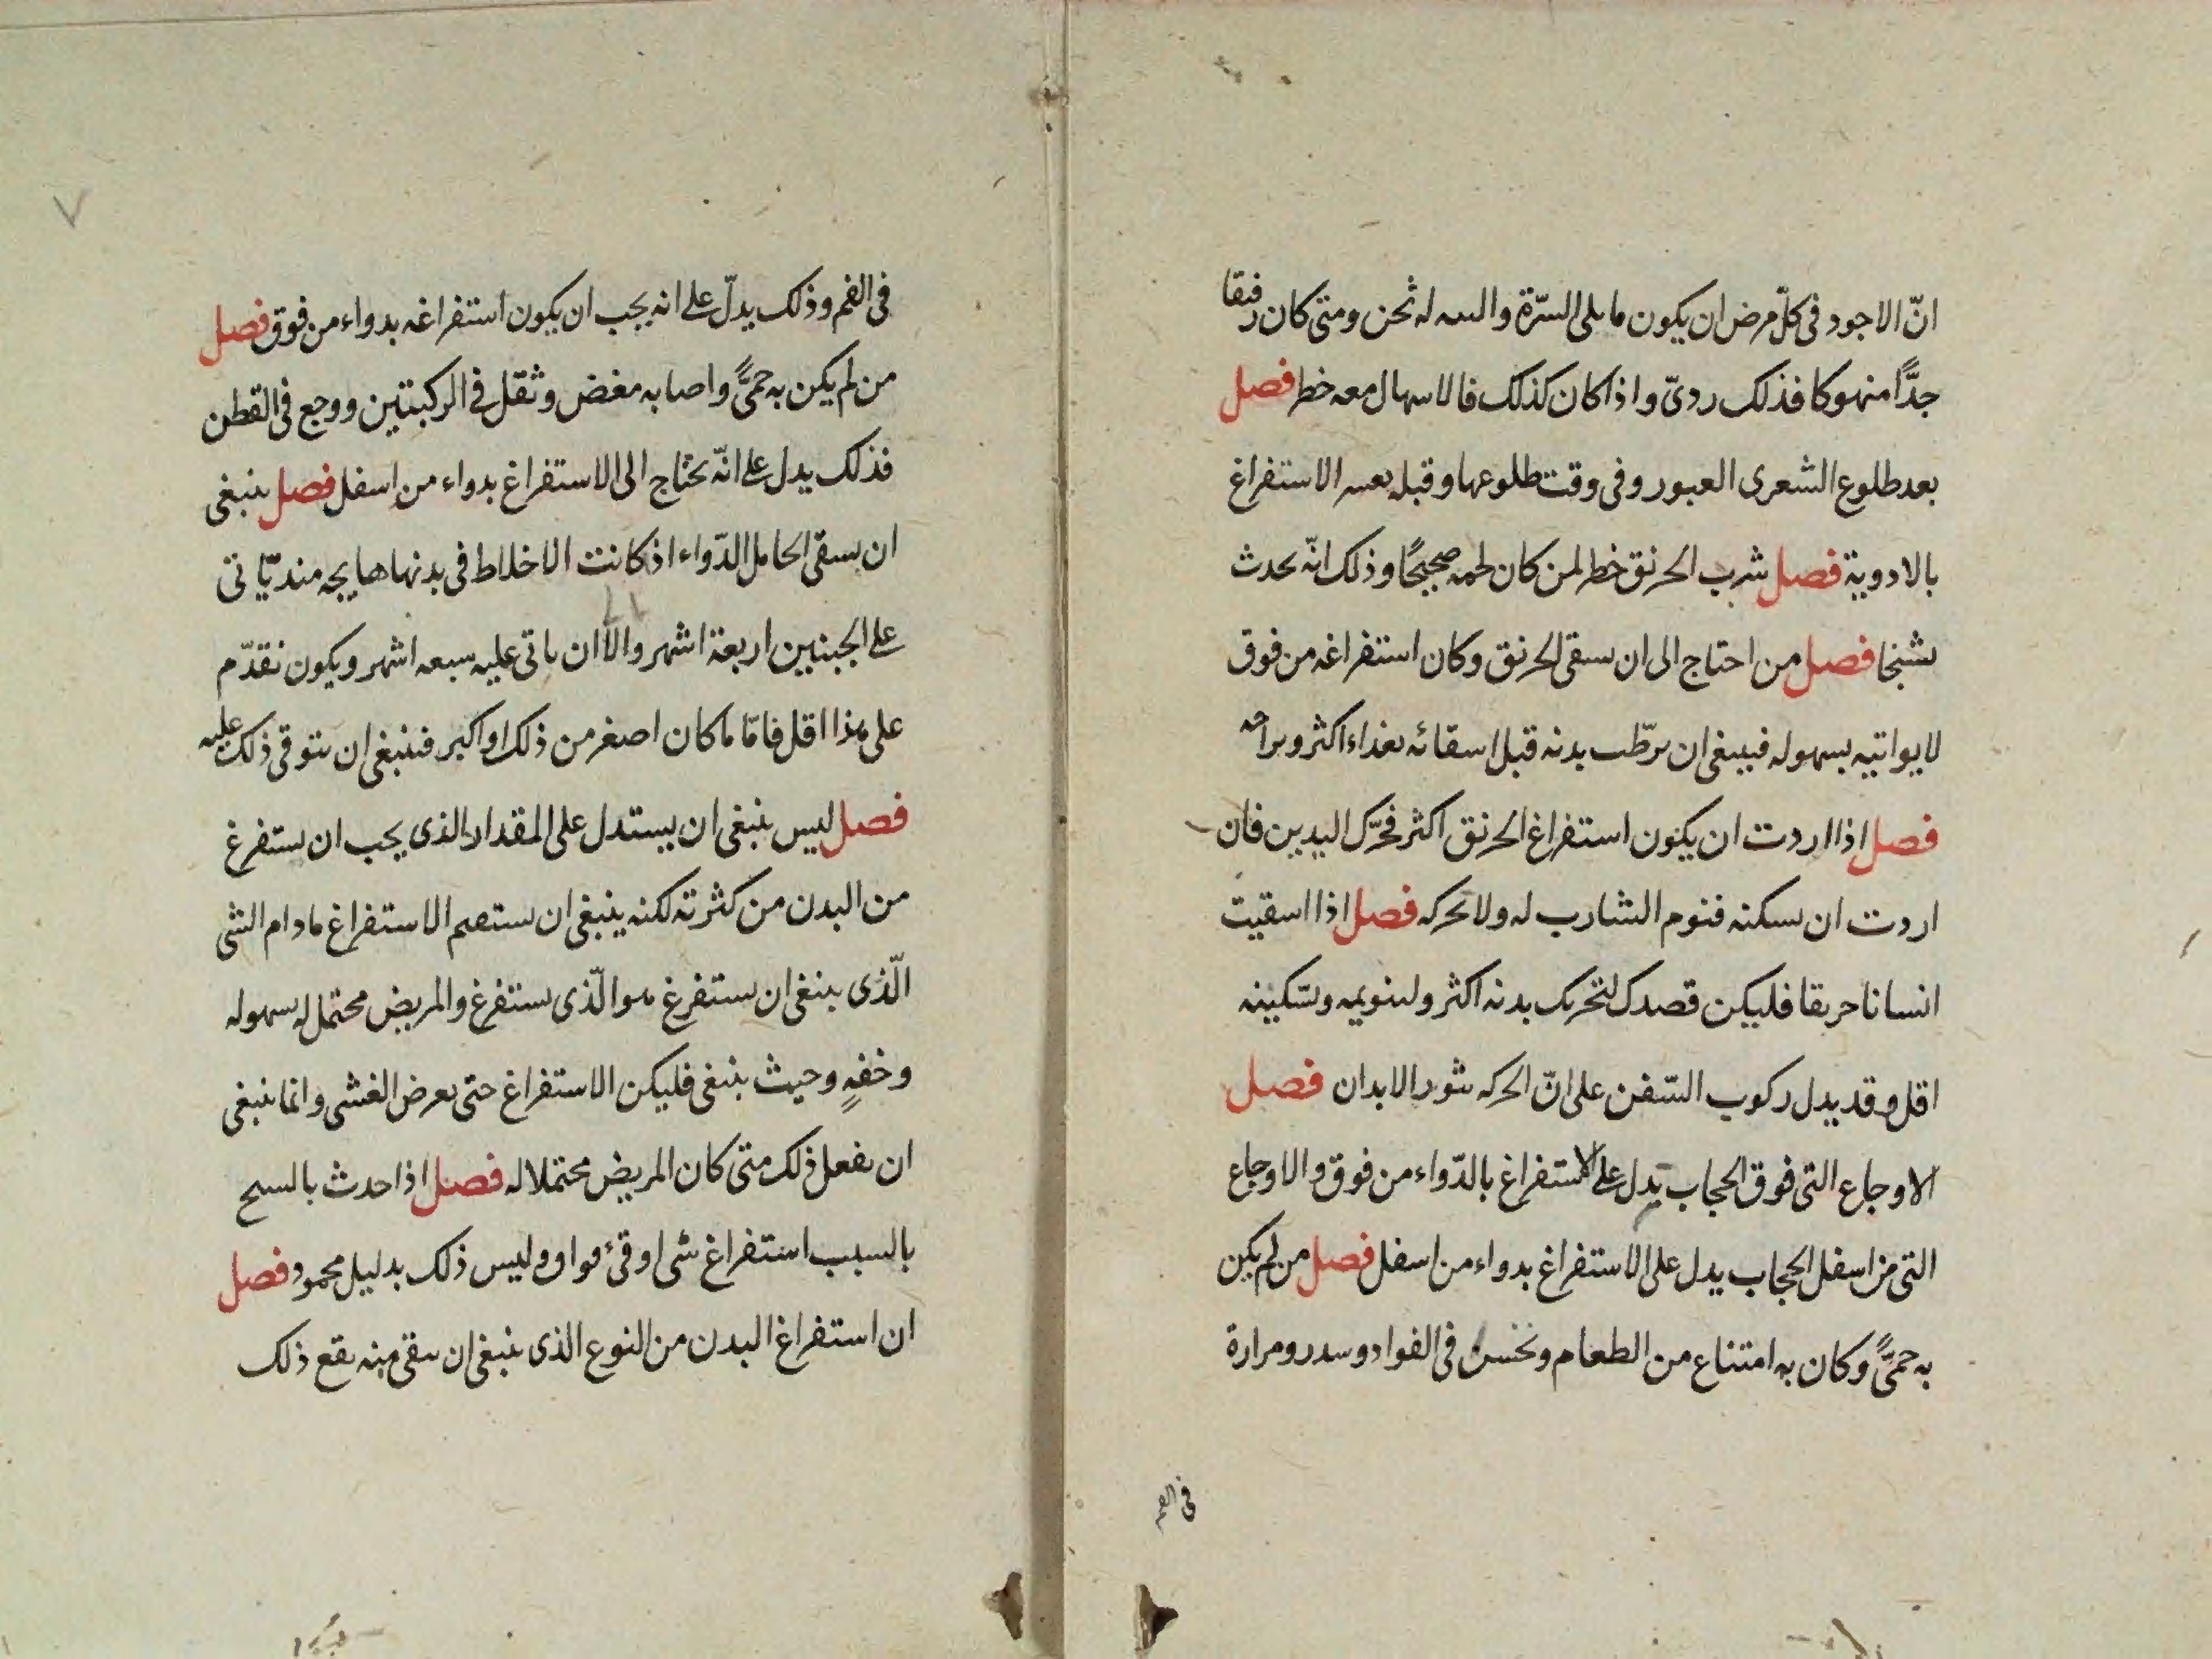 انّ الاجود فى كلّ مرض ان يكون ما يلى السرّة والسه له ثخن ومتى كان رقيقا
جدًّا منهوكا فذلك ردىّ واذا كان كذلك فالاسهال معه خطر فصل
بعد طلوع الشعرى العبور وفى وقت طلوعها وقبله يعسر الاستفراغ
بالادوية فصل شرب الخربق خطر لمن كان لحمه صحيحًا وذلك انّه يحدث
تشنجا فصل من احتاج الى ان يسقى الخربق وكان استفراغه من فوق
لا يواتيه بسهوله فينبغى ان يرطّب بدنه قبل اسقائه بغذاء اكثر وبراحه
فصل اذا اردت ان يكون استفراغ الخربق اكثر فحرّك البدن فان
اردت ان تسكنه فنوم الشارب له ولا تحركه فصل اذا اسقيت
انسانا خربقا فليكن قصدك لتحريك بدنه اكثر ولتنويمه وتسكينه
اقل وقد يدل ركوب السّفن على انّ الحركه تثور الابدان فصل
الاوجاع التى فوق الحجاب تدل على الاستفراغ بالدّواء من فوق والاوجاع
التى من اسفل الحجاب يدل على الاستفراغ بدواء من اسفل فصل من لم يكن
به حمىًّ وكان به امتناع من الطعام ونخس فى الفواد وسدر ومرارة
فى الفم
٧
فى الفم وذلك يدلّ على انه يجب ان يكون استفراغه بدواء من فوق فصل
من لم يكن به حمىًّ واصابه مغص وثقل فى الركبتين ووجع فى القطن
فذلك يدل على انّه يحتاج الى الاستفراغ بدواء من اسفل فصل ينبغى
ان يسقى الحامل الدّواء اذ كانت الاخلاط فى بدنها هايجه منذ يّاتى
على الجنين اربعة اشهر والا ان ياتى عليه سبعه اشهر ويكون تقدّم
على هذا اقل فامّا ما كان اصغر من ذلك او اكبر فينبغى ان يتوقى ذلك عليه
فصل ليس ينبغى ان يستدل على المقدار الذى يجب ان يستفرغ
من البدن من كثرته لكنه ينبغى ان يستعمم الاستفراغ مادام الشى
الّذى ينبغى ان يستفرغ هو الّذى يستفرغ والمريض محتمل له بسهوله
وخفهٍ وحيث ينبغى فليكن الاستفراغ حتى يعرض الغشى وانما ينبغى
ان يفعل ذلك متى كان المريض محتملا له فصل اذا حدث بالسبح
بالسبب استفراغ شى او قئ فواو وليس ذلك بدليل محمود فصل
ان استفراغ البدن من النوع الذى ينبغى ان ينقى منه يقع ذلك